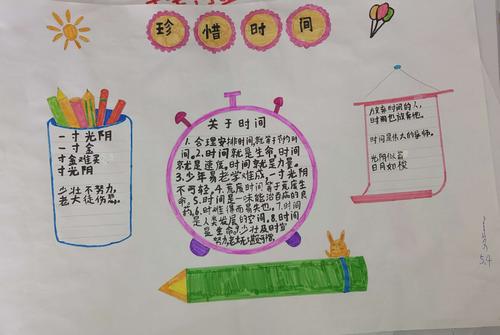 珍惜时间
一寸光阴
一寸金
寸金难买
寸光阴
少壮不努力,
老大徒伤悲。
关于时间
1.合理安排时间,就等于节约时
间。2.时间就是生命,时间
就是速度,时间就是力量。
3.少年易老学难成,一寸光阴
不可轻。4.荒废时间等于荒废生
命。5.时间是一味能治百病的良
药。6.时难得而易失也。7.时间
是人类发展的空间。8.时间
是生命,少壮及时宜
努力,老大
放弃时间的人,
时间也放弃他。
时间是伟大的导师。
光阴似箭
日月如梭
5.4